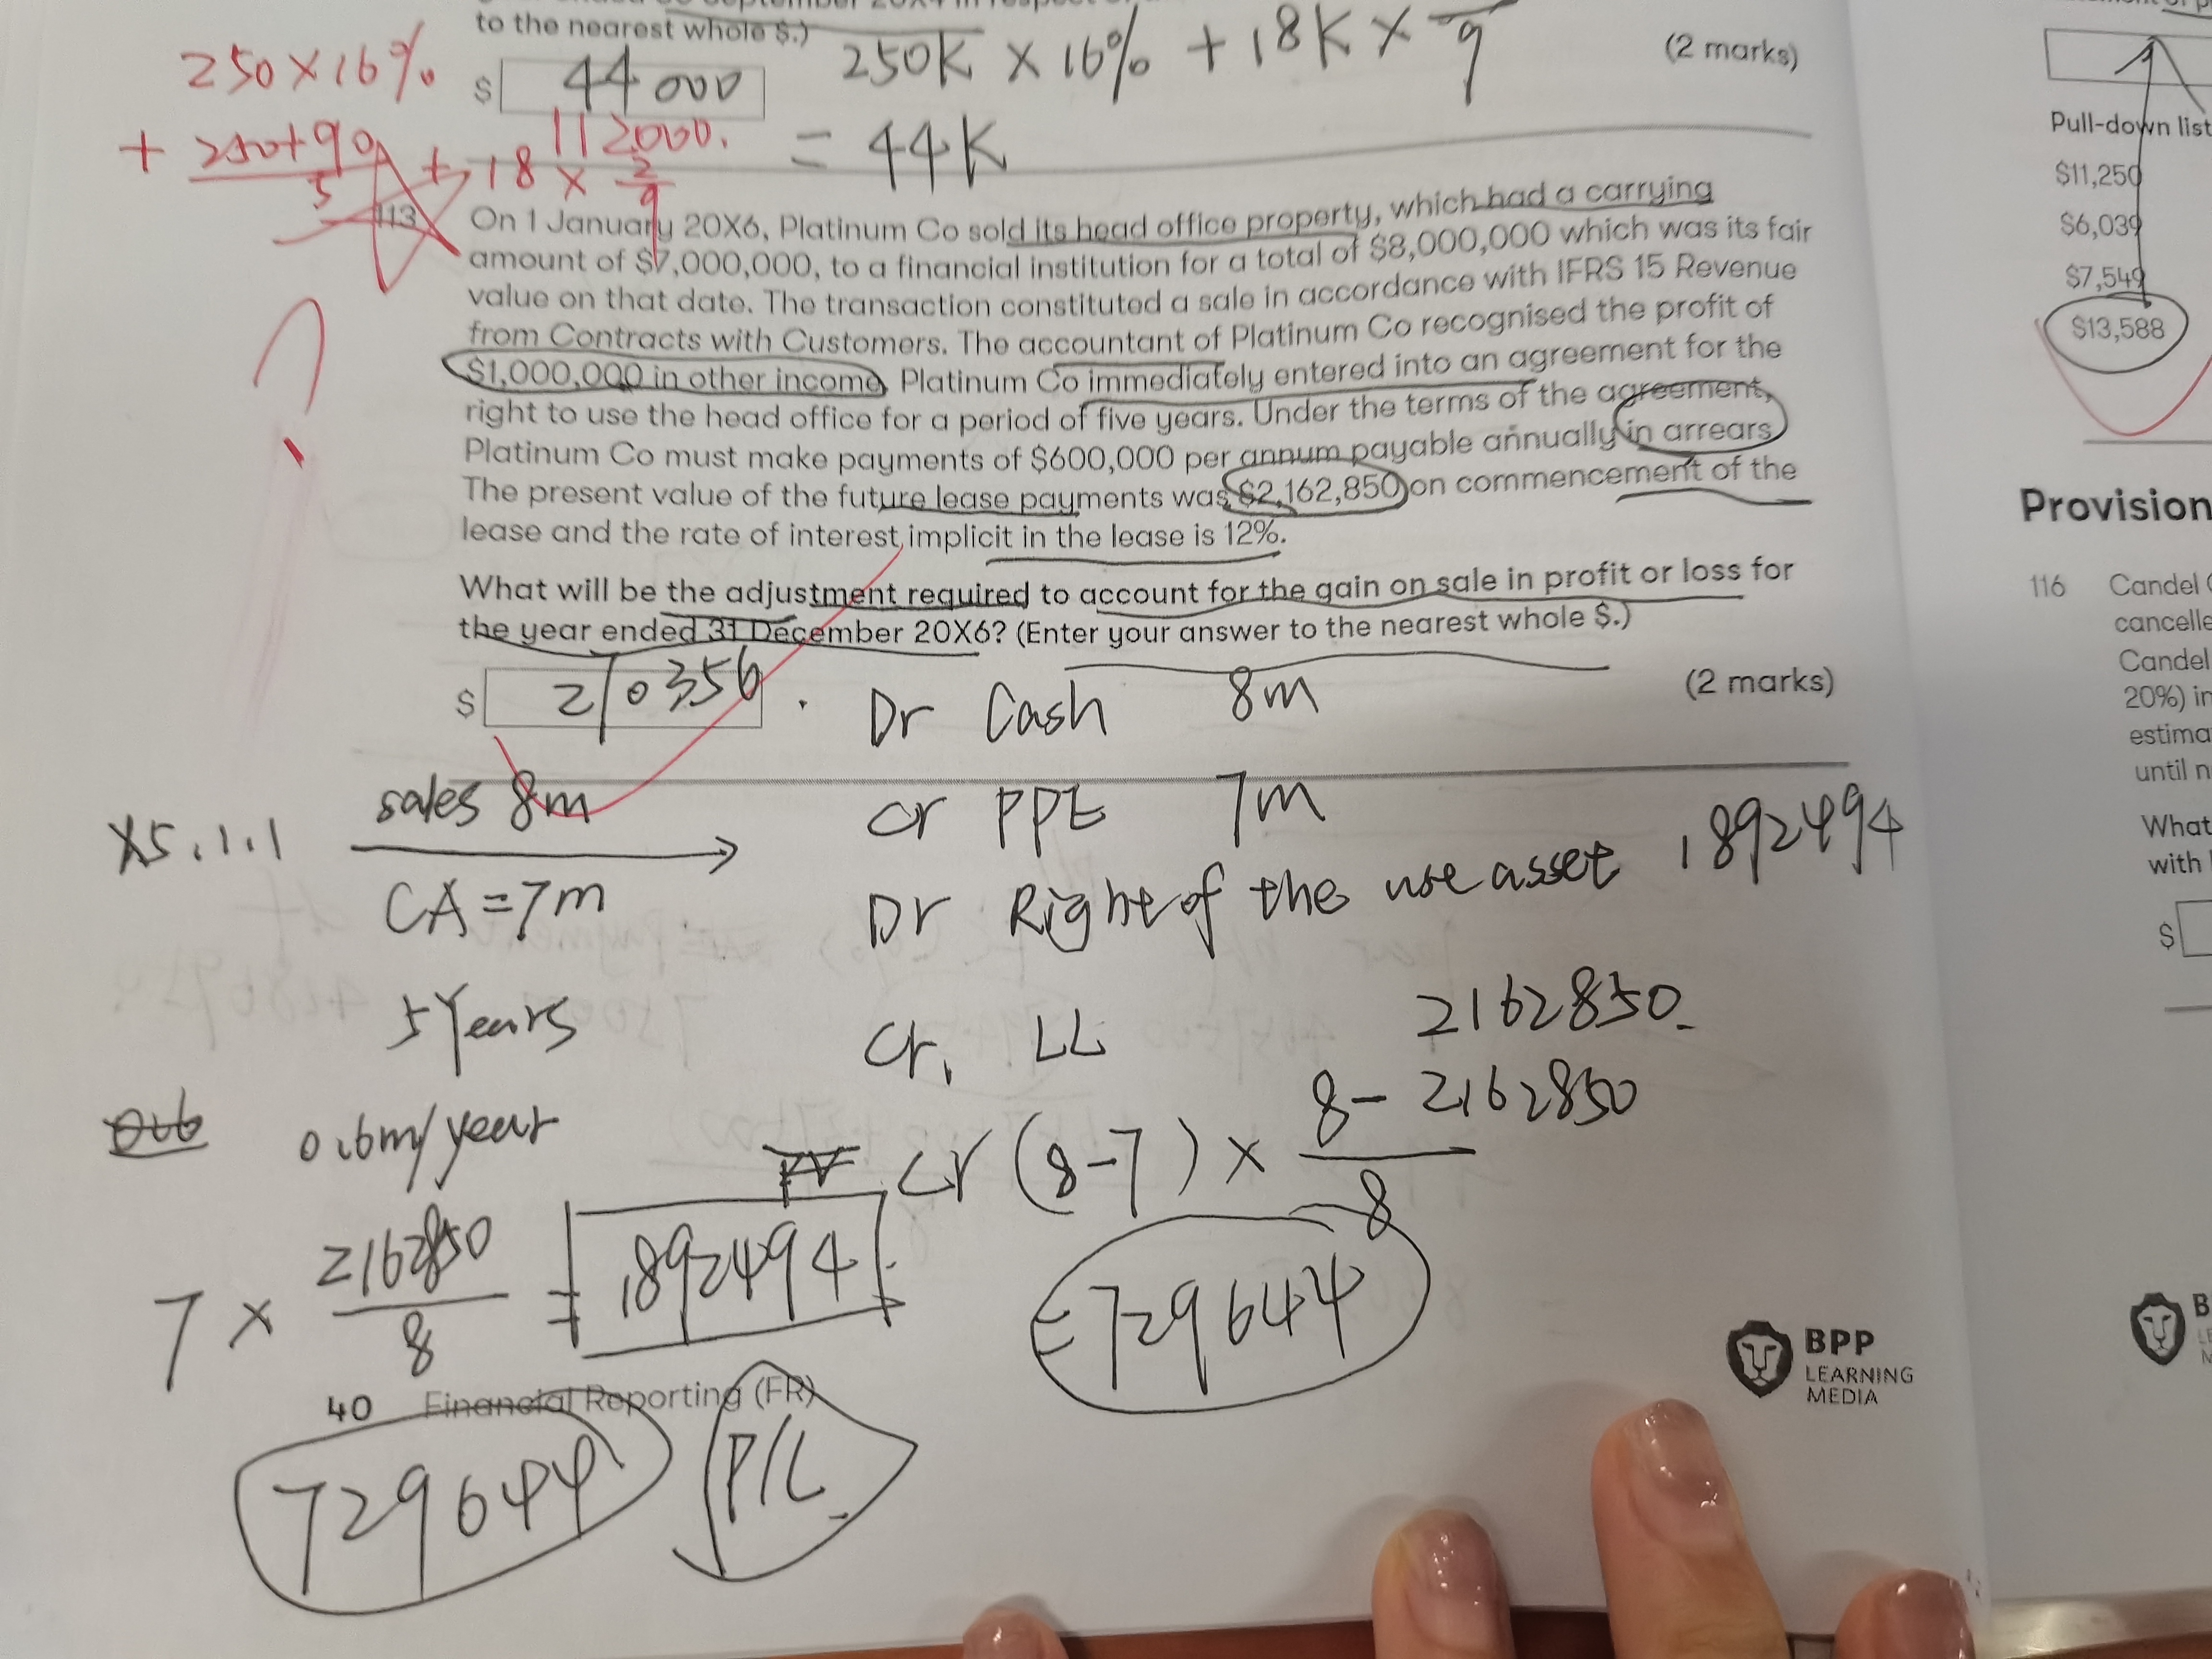 to the nearest whole $.)
250K × 16% + 18K × 9
(2 marks)
250 × 16%
$ 44 000
+ 250+90 / 5 + 18 × 2/9
112000.
= 44K
113 On 1 January 20X6, Platinum Co sold its head office property, which had a carrying
amount of $7,000,000, to a financial institution for a total of $8,000,000 which was its fair
value on that date. The transaction constituted a sale in accordance with IFRS 15 Revenue
from Contracts with Customers. The accountant of Platinum Co recognised the profit of
$1,000,000 in other income. Platinum Co immediately entered into an agreement for the
right to use the head office for a period of five years. Under the terms of the agreement,
Platinum Co must make payments of $600,000 per annum payable annually in arrears
The present value of the future lease payments was $2,162,850 on commencement of the
lease and the rate of interest implicit in the lease is 12%.
?
What will be the adjustment required to account for the gain on sale in profit or loss for
the year ended 31 December 20X6? (Enter your answer to the nearest whole $.)
$ 270356.
(2 marks)
Dr Cash 8m
sales 8m
X5.1.1
CA = 7m
Cr PPE 7m
Dr Right of the use asset 1892494
5 Years
Cr. LL 2162850.
0.6m/year
Cr (8-7) × 8 - 2162850 / 8
7 × 2162850 / 8 = 1892494
= 729644
40 Financial Reporting (FR)
729644 P/L
BPP
LEARNING
MEDIA
Pull-down list
$11,250
$6,039
$7,549
$13,588
Provision
116 Candel
cancelle
Candel
20%) in
estima
until n
What
with
$